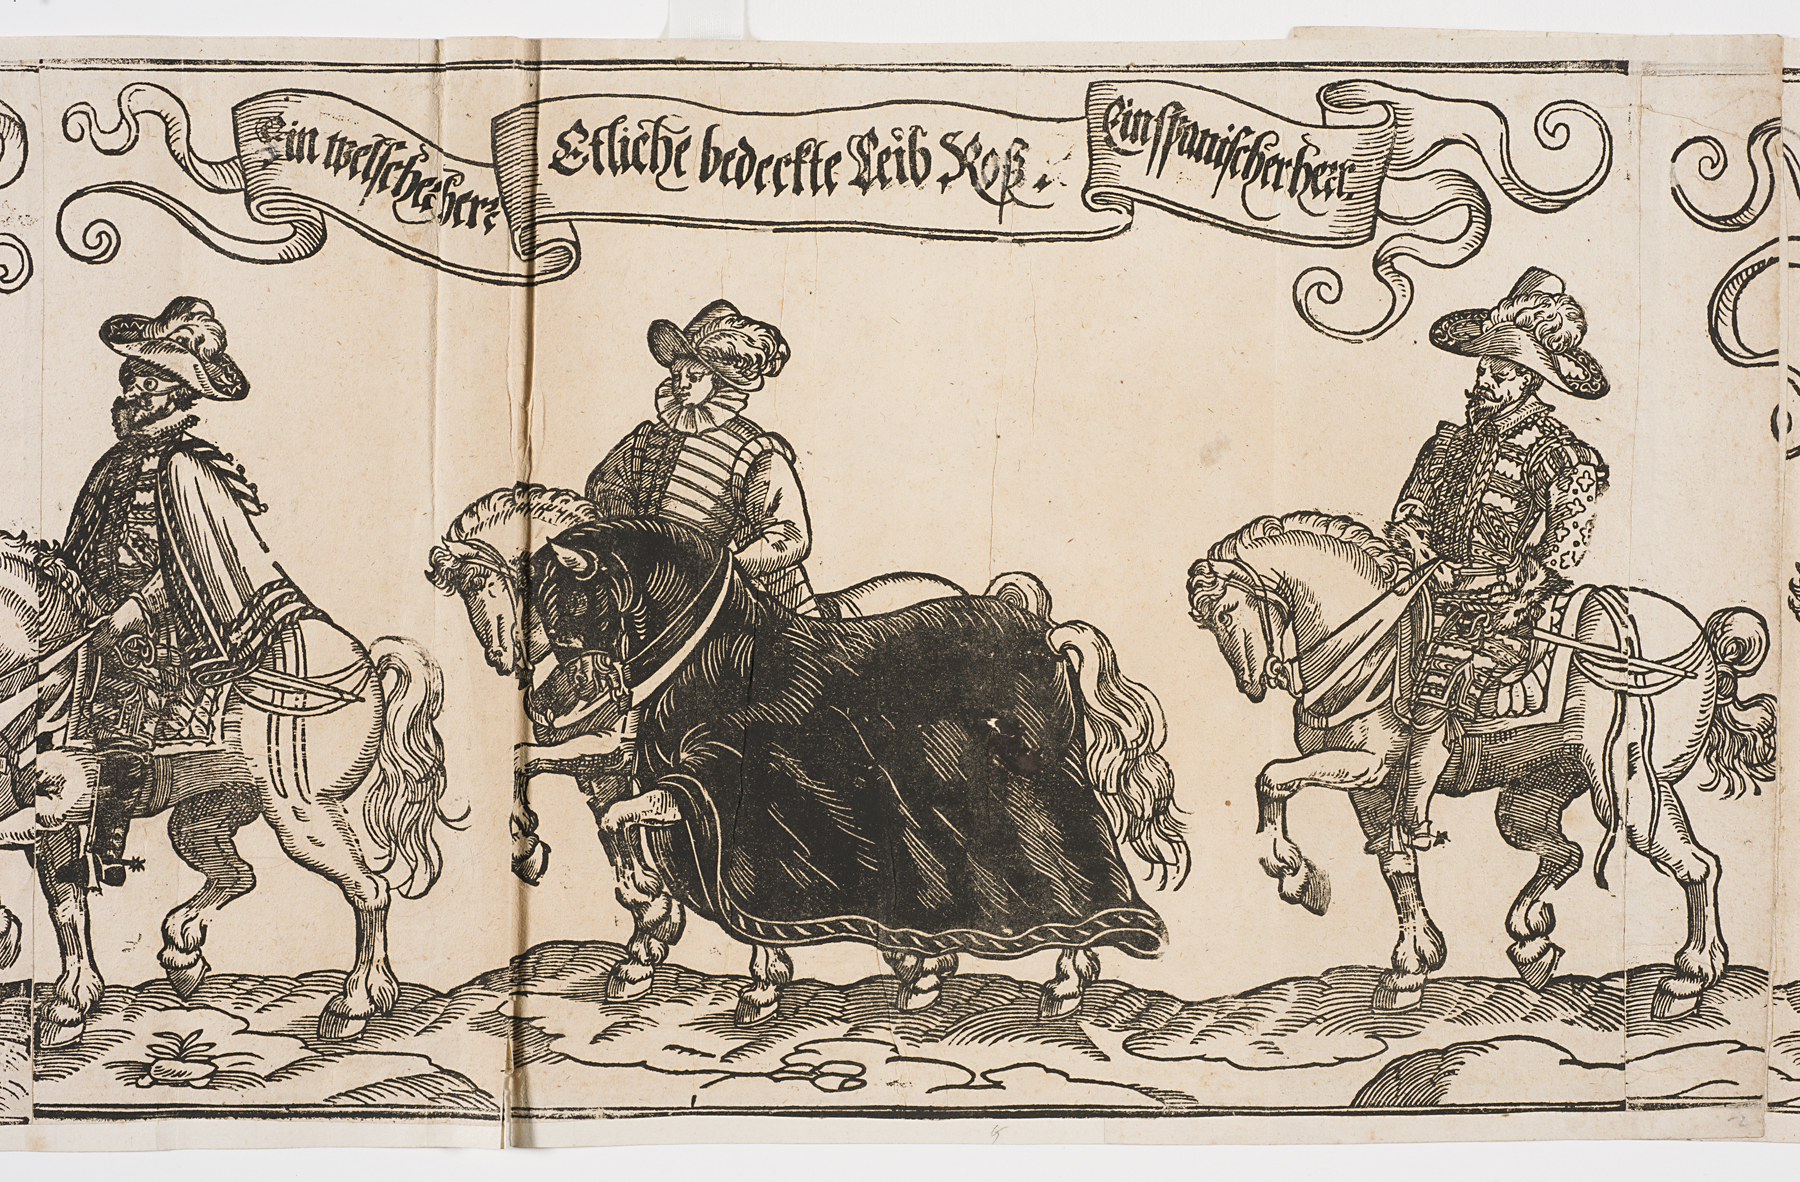 Ein welscher herr
Etliche bedeckte Leib Roß.
Ein spanischer herr.